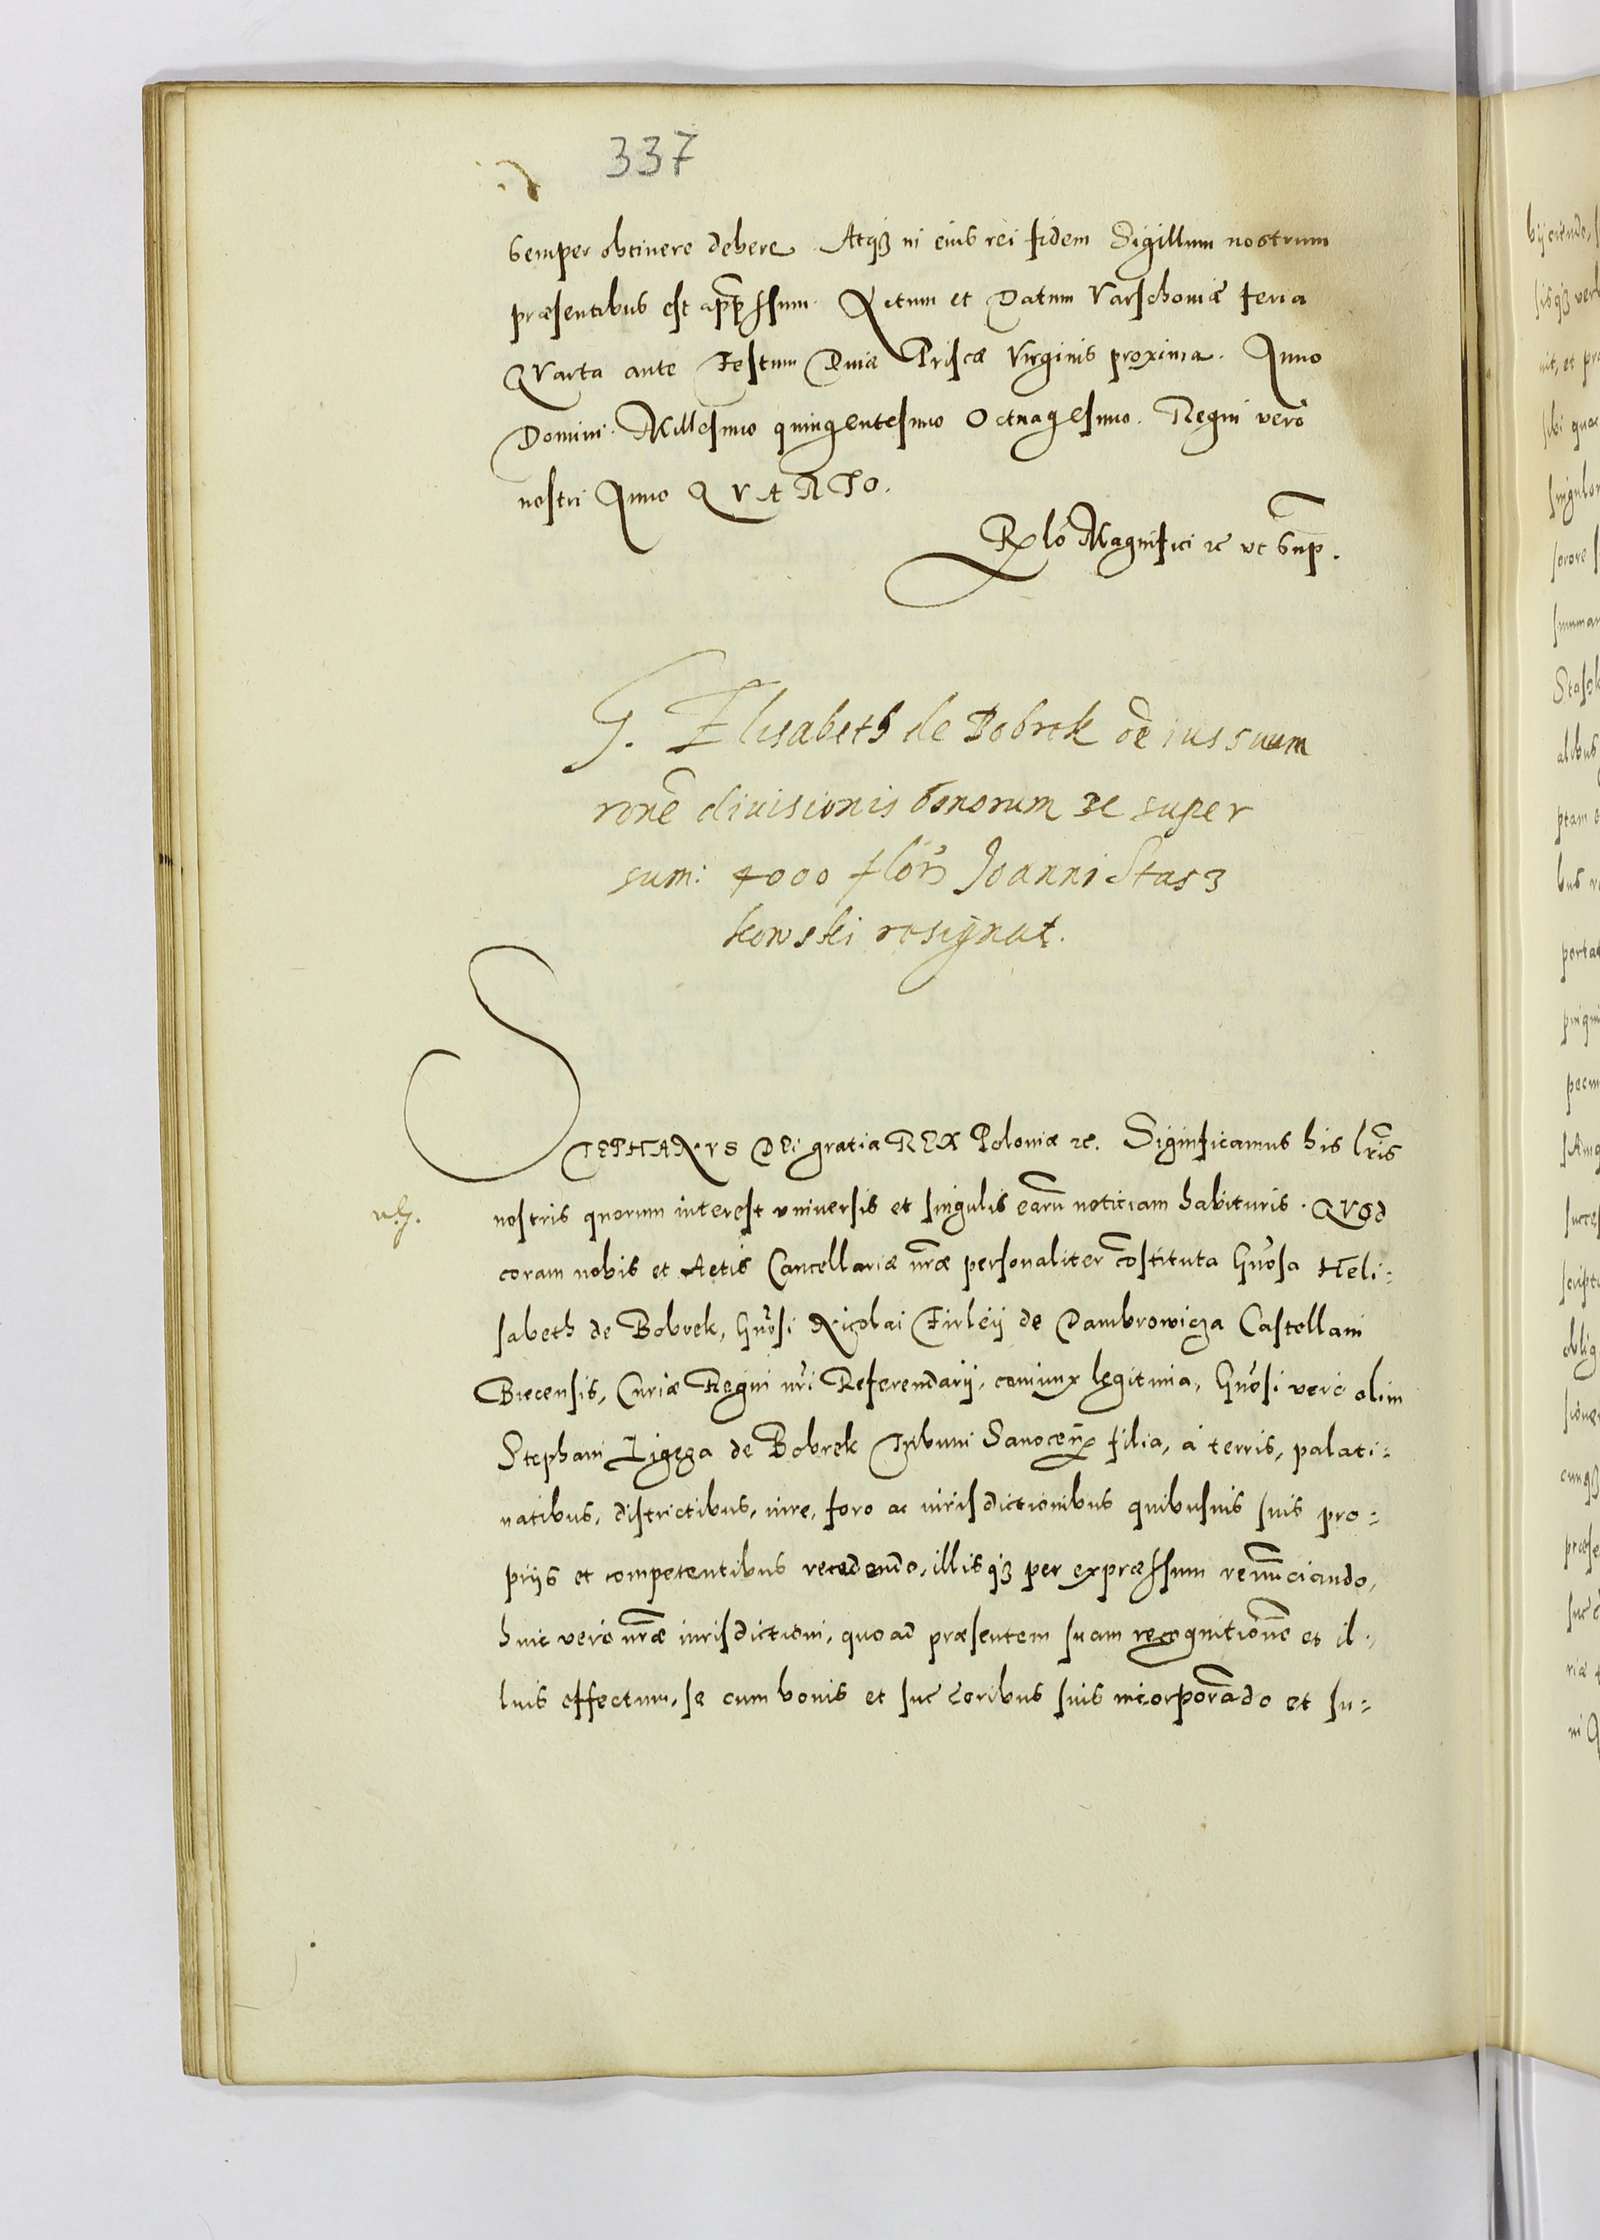 337
semper obtinere debere. Atqꝫ in eius rei fidem Sigillum nostrum
præsentibus est app̄ssum. Actum et Datum Varschoviæ feria
QVarta ante Festum Diuæ Priscæ Virginis proxima. Anno
Domini. Millesimo quingentesimo Octuagesimo. Regni vero
nostri Anno QVARTO.
Rl̃o Magnifici ꝛc ut sup̄.
G. Elisabeth de Bobrek oẽ ius suum
rõnẽ diuisionis bonorum ꝛc super
sum: 4000 flor̃ Joanni Stasz
kowski resignat.
STEPHANVS DEi gratia REX Poloniæ ꝛc. Significamus his lr̃is
nostris quorum interest vniuersis et singulis earũ notitiam habituris. QVod
coram nobis et Actis Cancellariæ nr̃æ personaliter cõstituta Gñosa Heli=
sabeth de Bobrek, Gñosi Nicolai Firleij de Dambrowicza Castellani
Biecensis, Curiæ Regni nr̃i Referendarij, coniunx legitima, Gñosi vero olim
Stephani Ligęza de Bobrek Tribuni Sanoceñ filia, à terris, palati=
natibus, districtibus, iure, foro ac iurisdictionibus quibusuis suis pro=
prijs et competentibus recedendo, illisqꝫ per expræssum renũciando,
huic vero nr̃æ iurisdictioni, quo ad præsentem suam recognitionẽ et il=
lius effectum, se cum bonis et succ̃oribus suis incorporãdo et su=